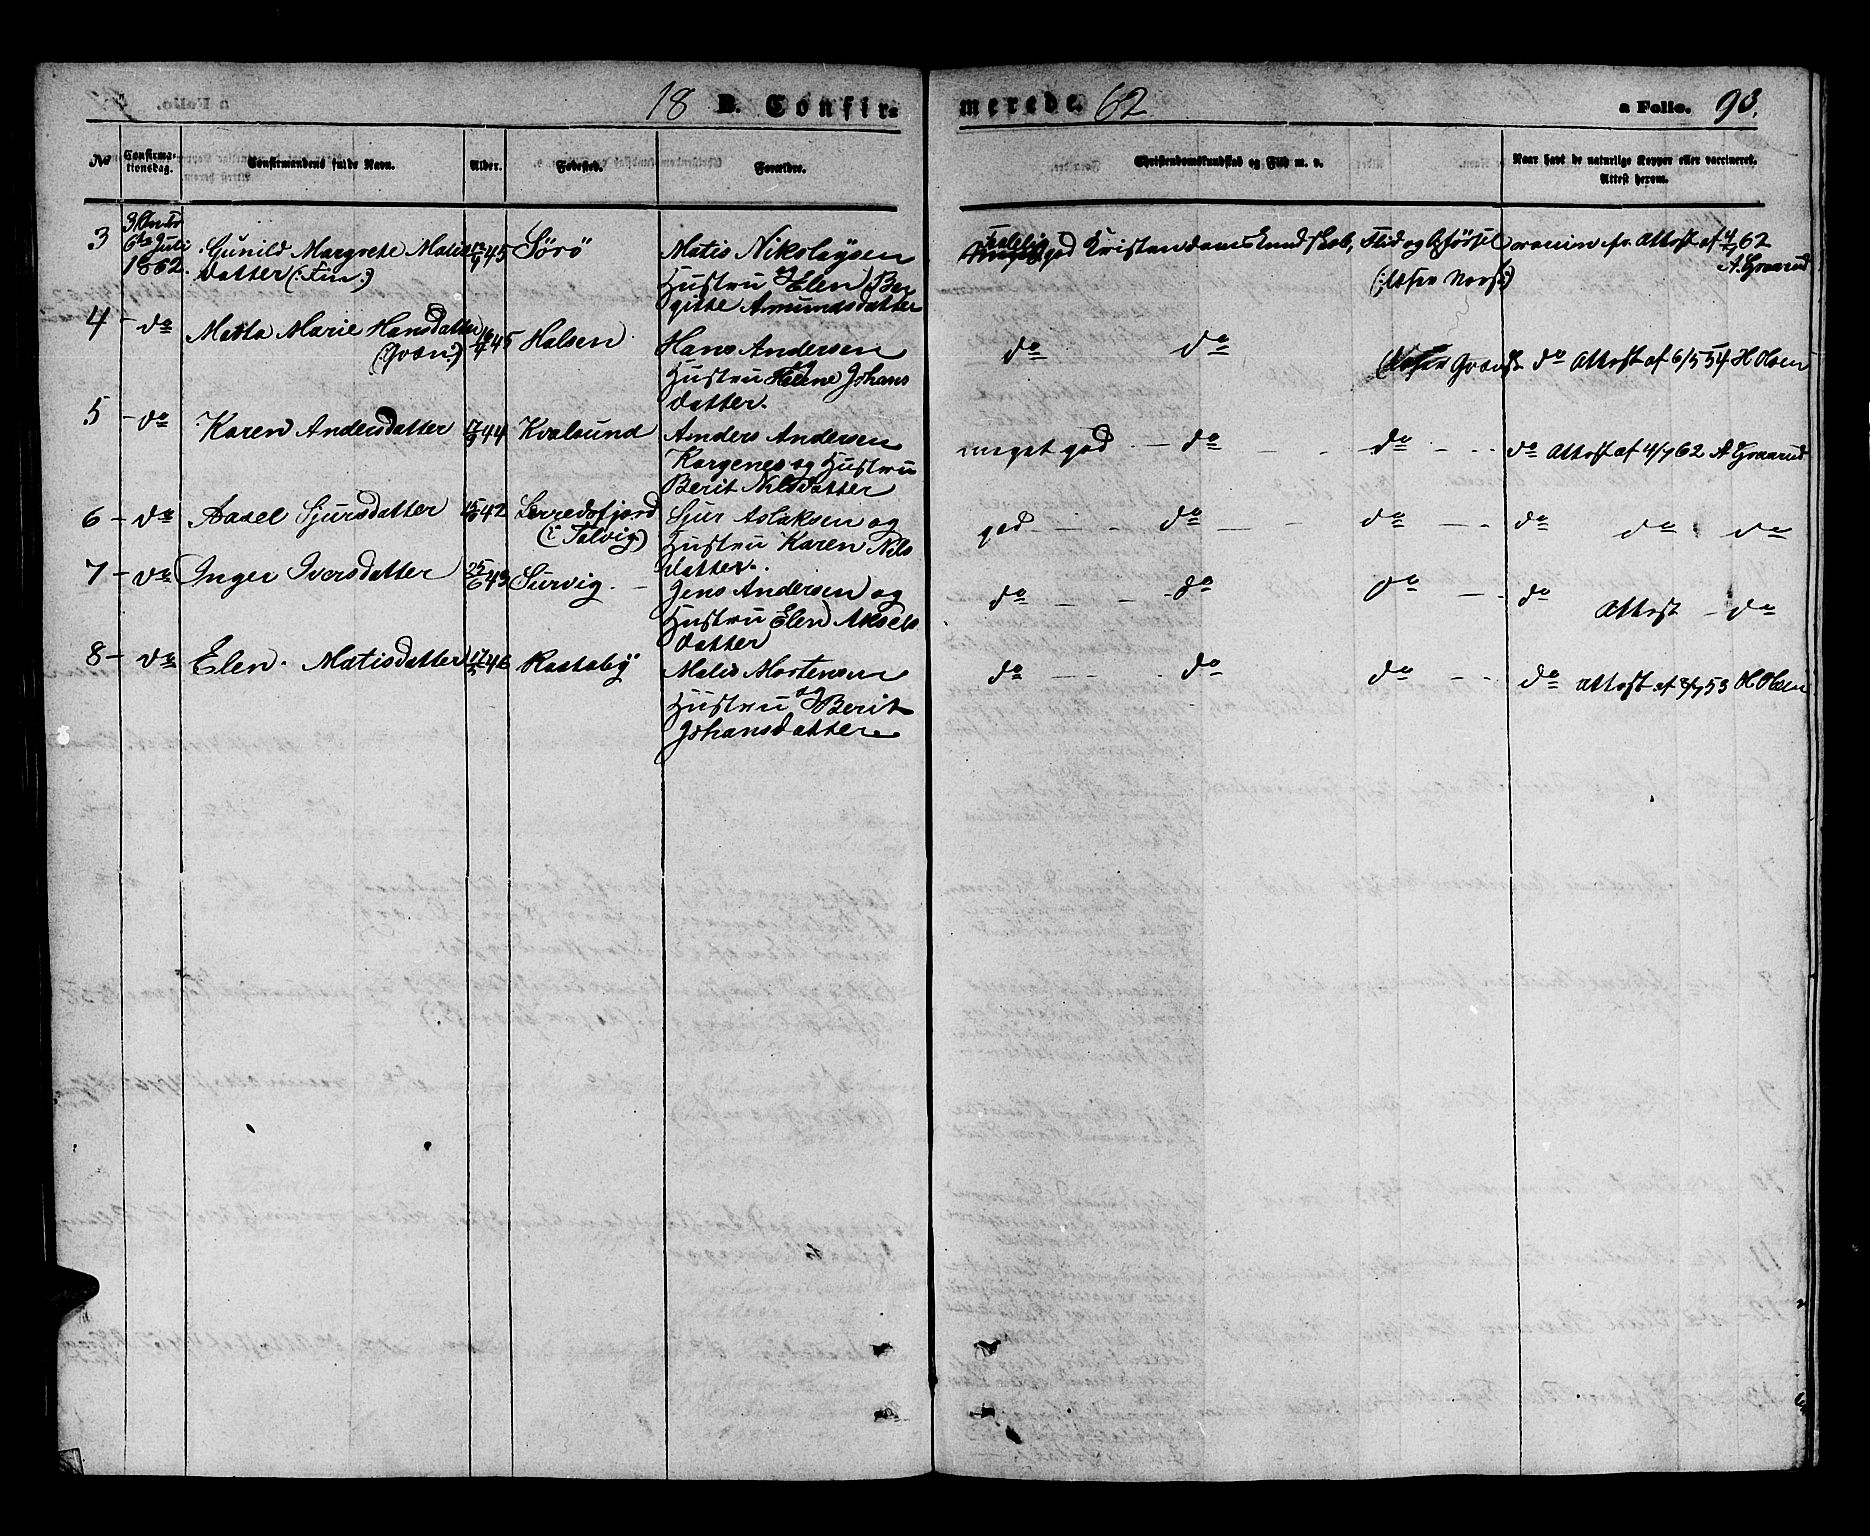 18 B. Confirmerede. 62 a Folio. 93.
No Confirmationsdag. Confirmandens fulde Navn. Alder. Fødested. Forældre. Christendomskundskab og Flid m. v. Naar havt de naturlige Kopper eller vaccineret. Attest herom.
3 6te Juli 1862. Gunild Margrete Matis
datter (: Fin :) 45 Sörö Matis Nikolaysen
og Hustru Elen Ber
gitte Amundsdatter
god Kristendomskundskab, Flid og Opførsel
(: læser Norsk :)
vaccin. fr. Attest af 62
A. Graarud
4 - do Metta Marie Hansdatter
(: Qvæn :) 45 Halsen Hans Andersen
og Hustru Helene Johans
datter.
do do (læser Qvænsk do Attest af 6/5 54 H Olsen
5 - do Karen Andersdatter 44 Kvalsund Anders Andersen
Kargenes og Hustru
Berit Nilsdatter
meget god - do - - do - - do Attest af 4/7 62 A Graarud
6 - do Aasel Sjursdatter 42 Lerredsfjord
(i Talvig) Sjur Aslaksen og
Hustru Karen Nils
datter.
god - - do - - do - - do do do
7 - do Inger Iversdatter 25/6 43 Survig. - Jens Andersen og
Hustru Elen Aksels
datter
do - - do do - - do Attest - do
8 - do Elen. Matisdatter 46 Rastaby Matis Mortensen
og Hustru Berit
Johansdatter
do - - do do - - do Attest af 53 H Olsen